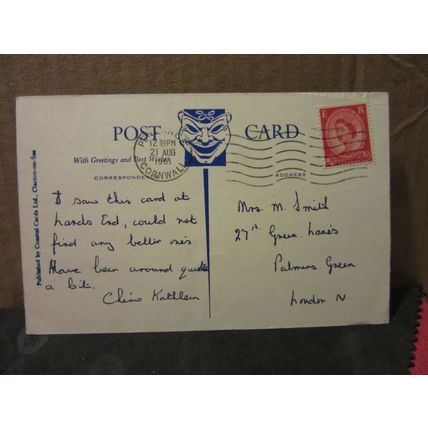 POST CARD
With Greetings and Best Wishes
CORRESPONDENCE
ADDRESS
12 30PM
21 AUG
1961
CORNWALL
E R
Published by Coastal Cards Ltd., Clacton-on-Sea
I saw this card at
Lands End, could not
find any better ones
Have been around quite
a bit.
Cheers Kathleen
Mrs. M. Smith
27A Green Lanes
Palmers Green
London N